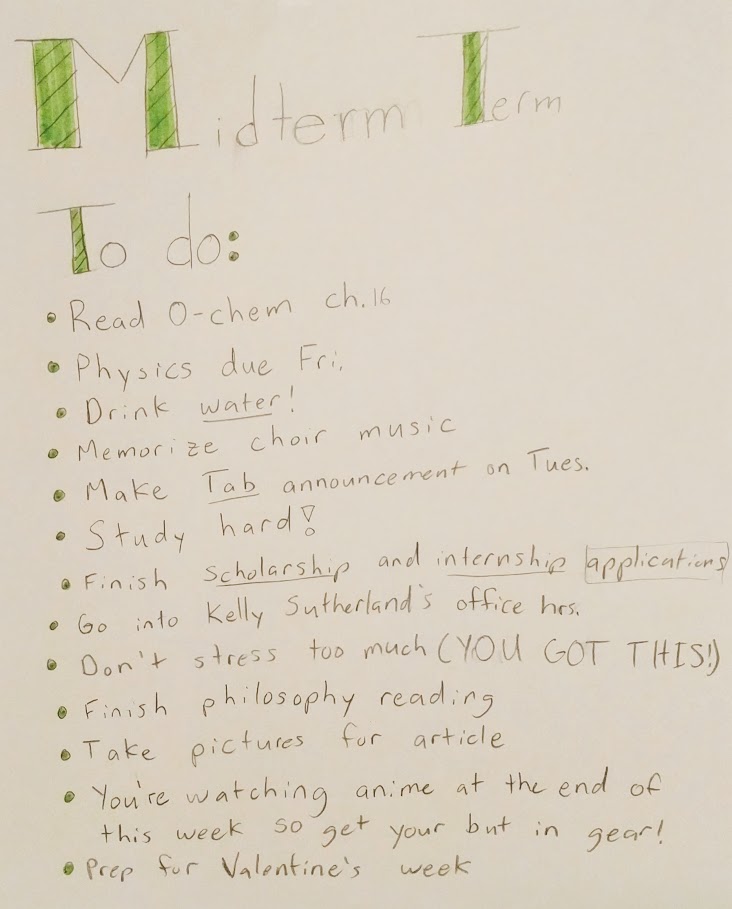 Midterm Term
To do:
• Read O-chem ch.16
• Physics due Fri.
• Drink water!
• Memorize choir music
• Make Tab announcement on Tues.
• Study hard!
• Finish scholarship and internship applications
• Go into Kelly Sutherland's office hrs.
• Don't stress too much (YOU GOT THIS!)
• Finish philosophy reading
• Take pictures for article
• You're watching anime at the end of
this week so get your but in gear!
• Prep for Valentine's week